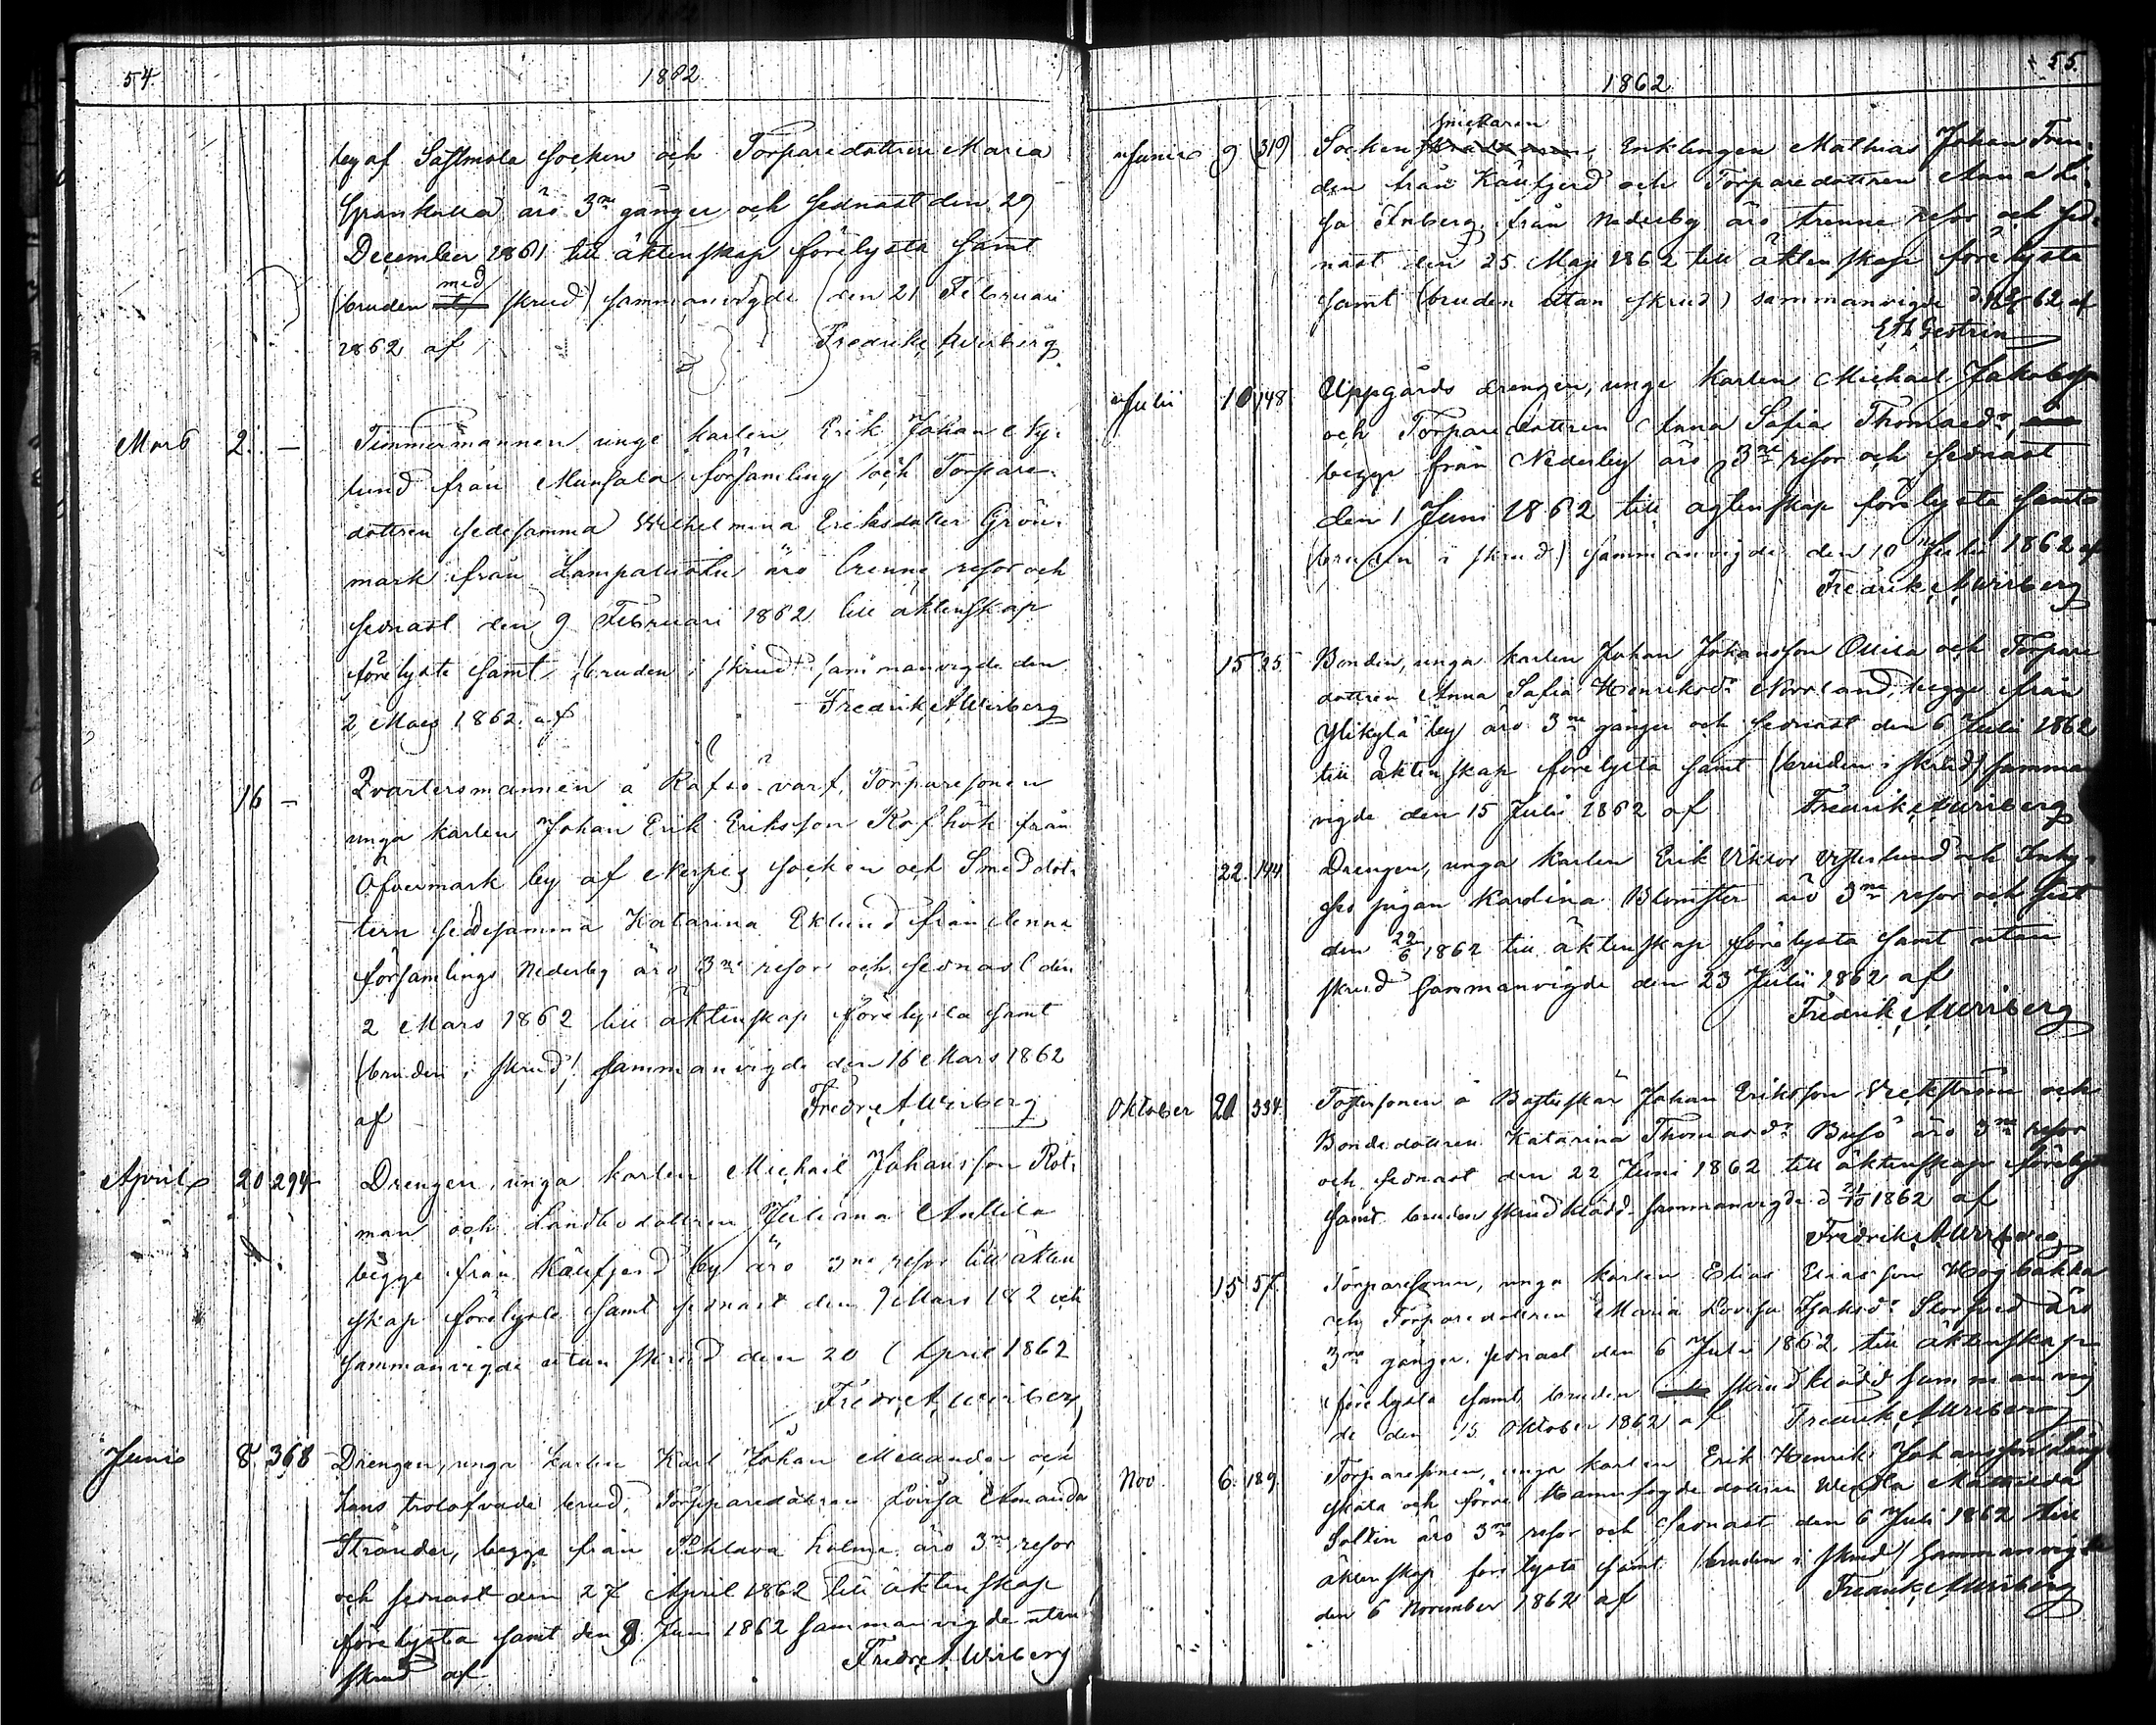 54. 1862
by af Sastmola socken och Torparedottren Maria
Grankulla äro 3ne gånger och sednast den 29
December 1861 till äktenskap förelysta samt
med
(bruden skrud) sammanvigde den 21 Februari
1862 af Fredrik A Wirberg
Mars 2. — Timmermannen unge karlen Erik Johan Ny-
lund från Munsala församling och Torpare-
dottren sedesamma Wilhelmina Eriksdotter Grön-
mark från Lampaluoto äro trenne resor och
sednast den 9 Februari 1862 till äktenskap
förelyste samt (bruden i skrud) sammanvigde den
2 Mars 1862 af Fredrik A Wirberg
16 — Qvartersmannen å Räfsö varf, Torparesonen
unga karlen Johan Erik Eriksson Räfhök från
Öfvermark by af Nerpes socken och Smeddot-
tern sedesamma Katarina Eklund från denna
församlings Nederby äro 3ne resor och sednast den
2 Mars 1862 till äktenskap förelysta samt
(bruden i skrud) sammanvigde den 16 Mars 1862
af Fredr. A Wirberg
April 20 294 Drengen, unga karlen Michael Johansson Rot-
man och Landbodottren Juliana Anttila
begge från Käufjerd by äro 3ne resor till äkten
skap förelyste samt sednast den 9 Mars 182 och
sammanvigde utan skrud den 20 April 1862
Fredr. A Wirberg
Junii 8. 368 Drengen, unga karlen Karl Johan Mellander och
hans trolofvade brud, Torparedottren Lovisa Amanda
Strander, begge från Pihlava holme äro 3ne resor
och sednast den 27 April 1862 till äktenskap
förelysta samt den 8 Juni 1862 sammanvigde utan
skrud af Fredr. A Wirberg
55.
1862
Junii 9 319 Socken, Enklingen Mathias Johan Fren-
den från Käufjerd och Torparedottren Anna Li-
sa Enberg från Nederby äro trenne resor och sed-
nast den 25 Maj 1862 till äktenskap förelysta
samt (bruden utan skrud) sammanvigde 62 af
Gestrin
Julii 10 148 Uppgårds drengen, unge karlen Michael Jakobss
och Torparedottren Anna Sofia Thomasdr,
begge från Nederby äro 3ne resor och sednast
den 1 Juni 1862 till ägtenskap förelysta samt
(bruden i skrud) sammanvigde den 10 Julii 1862 af
Fredrik A Wirberg
15 25 Bonden, unga karlen Johan Johansson Ollila och Torpare
dottren Anna Sofia Henriksdr Norrland, begge från
Ylikylä by äro 3ne gånger och sednast den 6 Julii 1862
till äktenskap förelysta samt (bruden i skrud) samman
vigde den 15 Julii 1862 af Fredrik A Wirberg
22. 144 Drengen, unga karlen Erik Viktor Vesterlund och Inhy-
ses pigan Karolina Blomster äro 3ne resor och sist
den 22/6 1862 till äktenskap förelysta samt utan
skrud sammanvigde den 23 Julii 1862 af
Fredrik A Wirberg
Oktober 21 334 Johan Eriksson och
Bondedottren Katarina Thomasdr Busö äro 3ne resor
och sednast den 22 Juni 1862 till äktenskap förelyst
samt bruden skrudklädd sammanvigde d 21/10 1862 af
Fredrik A Wirberg
15 57. Torparesonen, unga karlen Elias Eliasson Högbakka
och Torparedottren Maria Lovisa Isaksdr Storsved äro
3ne gånger sednast den 6 Juli 1862 till äktenskap
förelysta samt bruden skrudklädd sammanvig
de den 15 Oktober 1862 af Fredrik A Wirberg
Nov. 6. 189. Torparesonen, unga karlen Erik Henrik Johansson Ling
skala och förre Hamnfogde dottren Wendla Mathilda
Soltin äro 3ne resor och sednast den 6 Juli 1862 till
äktenskap förelysta samt (bruden i skrud) sammanvigde
den 6 November 1862 af Fredrik A Wirberg